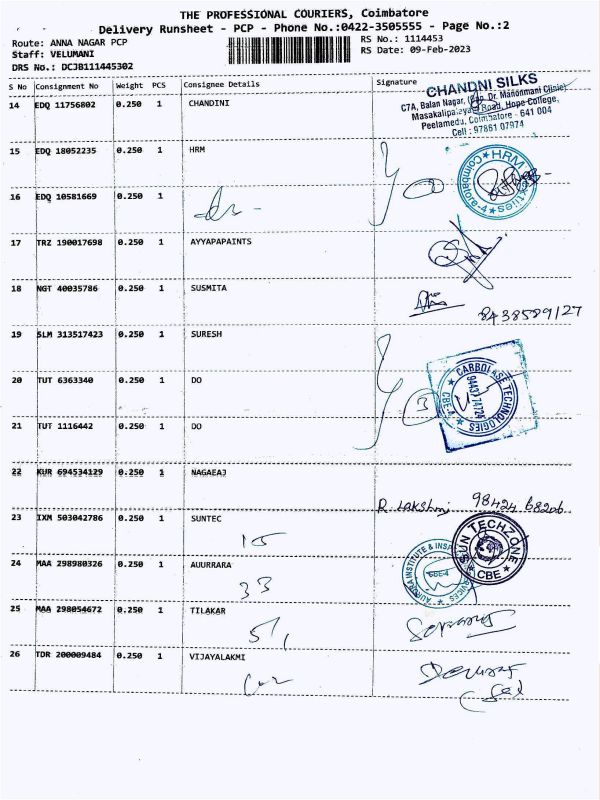 THE PROFESSIONAL COURIERS, Coimbatore
Delivery Runsheet - PCP - Phone No.:0422-3505555 - Page No.:2
Route: ANNA NAGAR PCP
Staff: VELUMANI
DRS No.: DCJB111445302
RS No.: 1114453
RS Date: 09-Feb-2023
S No Consignment No Weight PCS Consignee Details Signature
14 EDQ 11756802 0.250 1 CHANDINI
CHANDNI SILKS
C7A, Balan Nagar, (Opp. Dr. Manonmani Clinic)
Masakalipalayam Road, Hope College,
Peelamedu, Coimbatore - 641 004
Cell : 97861 07974
15 EDQ 18052235 0.250 1 HRM
HRM Coimbatore-4
16 EDQ 10581669 0.250 1
2
17 TRZ 190017698 0.250 1 AYYAPAPAINTS
18 NGT 40035786 0.250 1 SUSMITA
8438589127
19 SLM 313517423 0.250 1 SURESH
20 TUT 6363340 0.250 1 DO
3
CARBOLASE TECHNOLOGIES
94437 74724
CBE-4
21 TUT 1116442 0.250 1 DO
22 KUR 694534129 0.250 1 NAGAEAJ
R. Lakshmi 98424 68206
23 IXM 503042786 0.250 1 SUNTEC
15
SUN TECHZONE
CBE
24 MAA 298980326 0.250 1 AUURRARA
33
AURORA INSTITUTE & INSP SERVICES
CBE-4
25 MAA 298054672 0.250 1 TILAKAR
51
26 TDR 200009484 0.250 1 VIJAYALAKMI